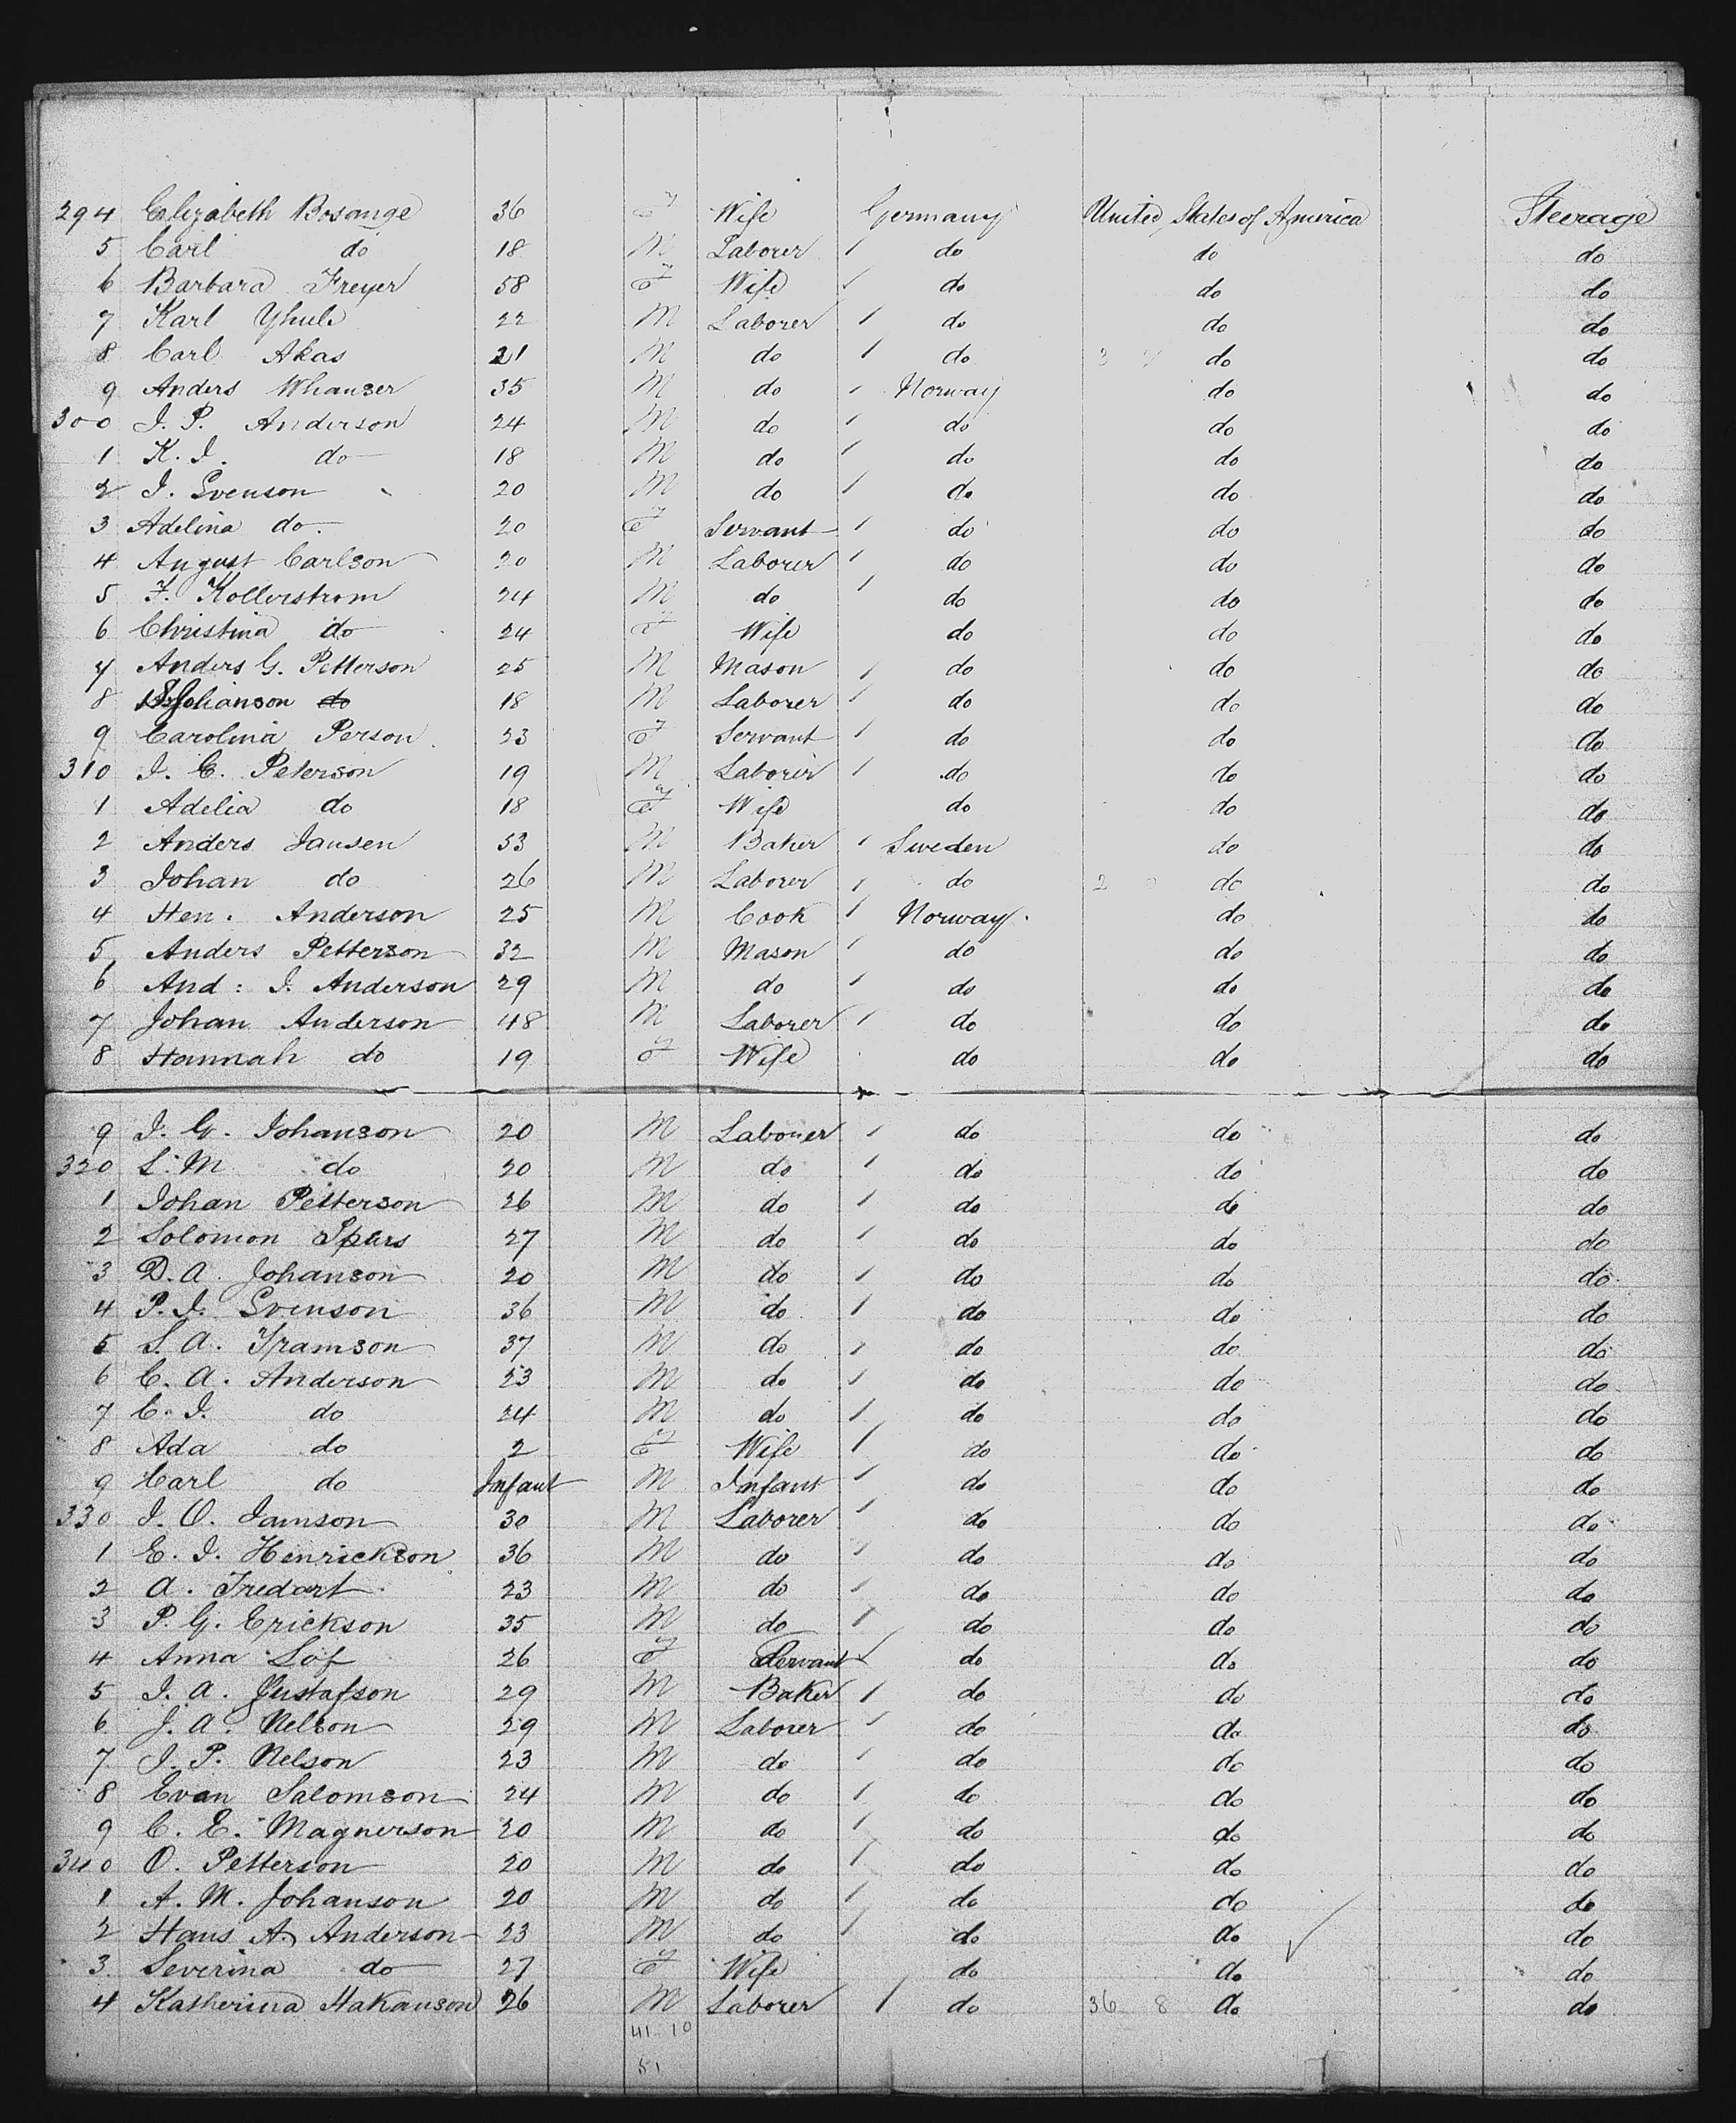 294 Elizabeth Bosange 36 F Wife Germany United States of America Steerage
5 Carl do 18 M Laborer / do do do
6 Barbara Freyer 58 F Wife / do do do
7 Karl 22 M Laborer / do do do
8 Carl Akas 21 M do / do 3 2 do do
9 Anders Whanser 35 M do / Norway do do
300 J. P. Anderson 24 M do / do do do
1 K. J. do 18 M do / do do do
2 J. Svenson 20 M do / do do do
3 Adelina do 20 F Servant / do do do
4 August Carlson 20 M Laborer / do do do
5 F. Kollerstrom 24 M do / do do do
6 Christina do 24 F Wife do do do
7 Anders G. Petterson 25 M Mason / do do do
8 Johanson do 18 M Laborer / do do do
9 Carolina Person 23 F Servant / do do do
310 J. C. Peterson 19 M Laborer / do do do
1 Adelia do 18 F Wife do do do
2 Anders Jansen 53 M Baker / Sweden do do
3 Johan do 26 M Laborer / do 2 0 do do
4 Hen. Anderson 25 M Cook / Norway do do
5 Anders Petterson 32 M Mason / do do do
6 And: J. Anderson 29 M do / do do do
7 Johan Anderson 48 M Laborer / do do do
8 Hannah do 19 F Wife do do do
9 J. G. Johanson 20 M Laborer / do do do
320 S. M do 20 M do / do do do
1 Johan Petterson 26 M do / do do do
2 Solomon Spars 27 M do / do do do
3 D. A. Johanson 20 M do / do do do
4 P. J. Svenson 36 M do / do do do
5 S. A. Framson 37 M do / do do do
6 C. A. Anderson 23 M do / do do do
7 C. J. do 24 M do / do do do
8 Ada do 2 F Wife / do do do
9 Carl do Infant M Infant / do do do
330 J. O. Jamson 30 M Laborer / do do do
1 E. J. Henrickson 36 M do / do do do
2 A. Fredart 23 M do / do do do
3 P. G. Erickson 35 M do / do do do
4 Anna Löf 26 F Servant ✓ do do do
5 J. A. Gustafson 29 M Baker / do do do
6 J. A. Nelson 29 M Laborer / do do do
7 J. P. Nelson 23 M do / do do do
8 Evan Salomson 24 M do / do do do
9 C. E. Magnerson 20 M do / do do do
340 O. Petterson 20 M do / do do do
1 A. M. Johanson 20 M do / do do do
2 Hans A. Anderson 23 M do / do do ✓ do
3 Severina do 27 F Wife do do do
4 Katherina Hakanson 26 M Laborer / do 36 8 do do
41 10
51